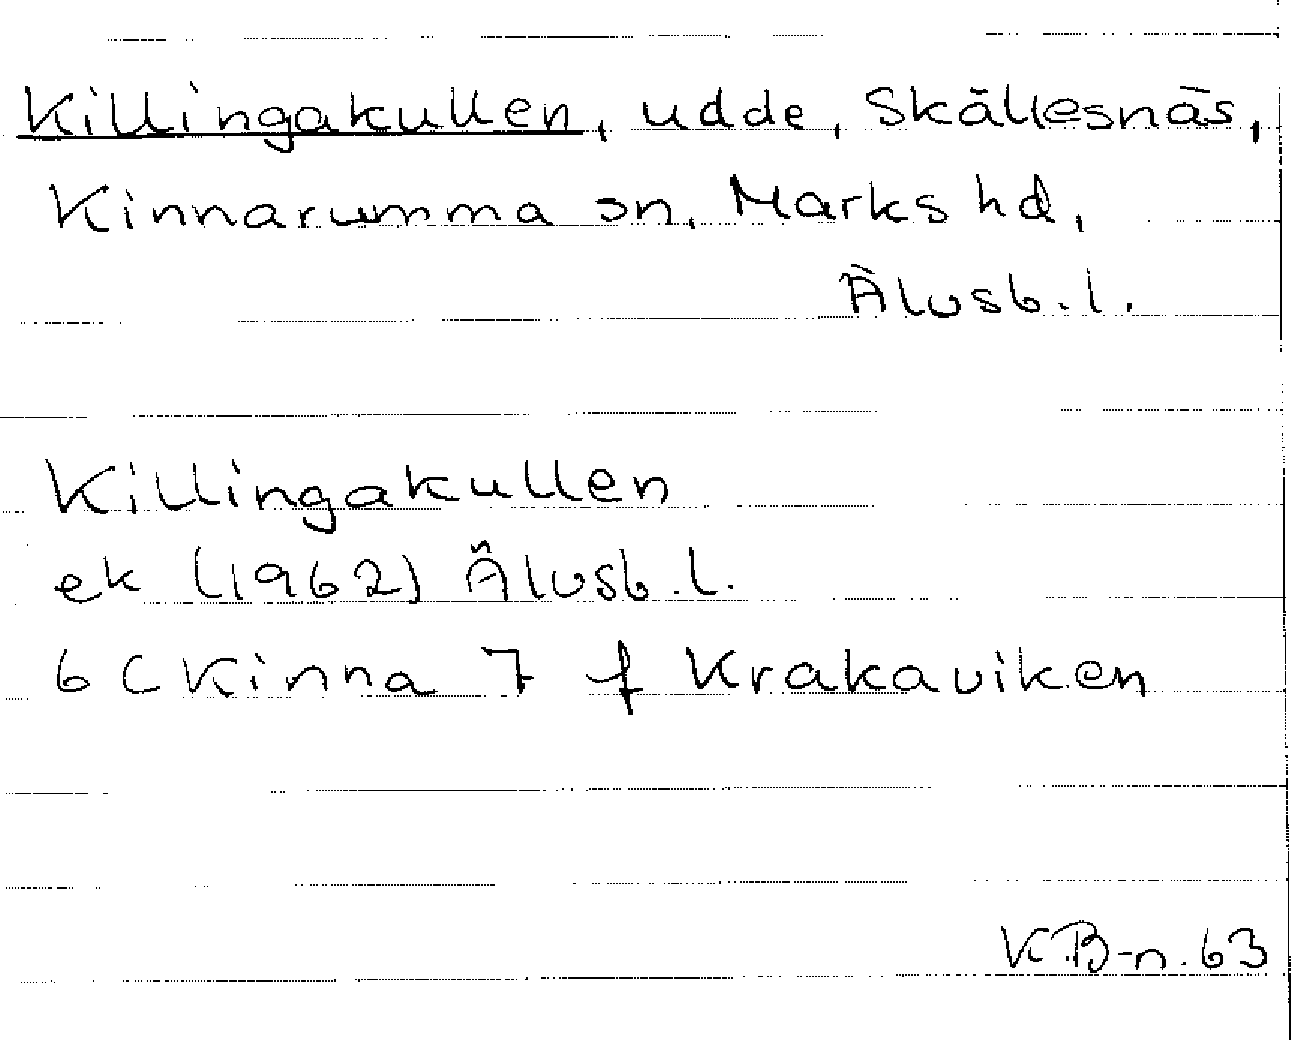 Killingakullen, udde, Skällesnäs,
Kinnarumma sn, Marks hd,
Älvsb. l.
Killingakullen
ek (1962) Älvsb. l.
6 C Kinna 7 f Krakaviken
KB-n. 63